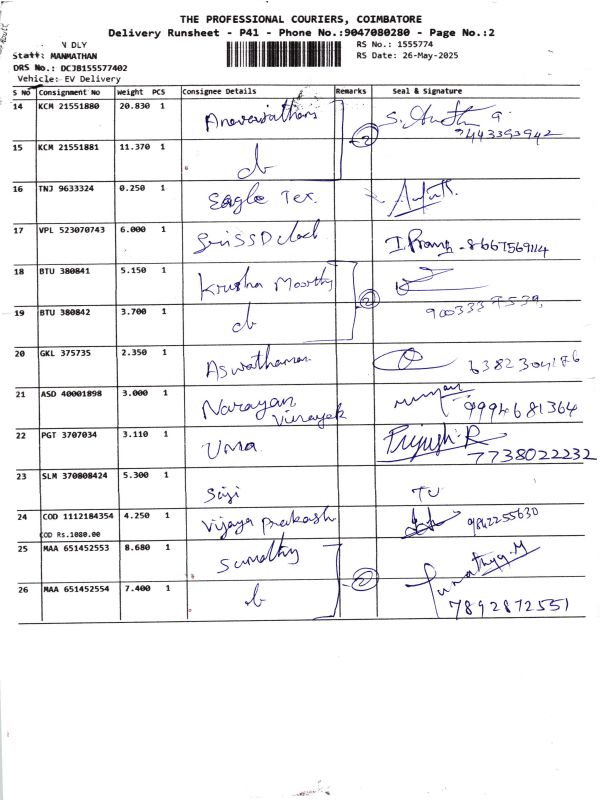 THE PROFESSIONAL COURIERS, COIMBATORE
Delivery Runsheet - P41 - Phone No.:9047080280 - Page No.:2
V DLY
Staff: MANMATHAN
DRS No.: DCJB155577402
Vehicle: EV Delivery
RS No.: 1555774
RS Date: 26-May-2025
S No Consignment No Weight PCS Consignee Details Remarks Seal & Signature
14 KCM 21551880 20.830 1 2
9443393942
15 KCM 21551881 11.370 1 do
16 TNJ 9633324 0.250 1 Eagle Tex.
17 VPL 523070743 6.000 1
18 BTU 380841 5.150 1 Krusha Moorthy 2
19 BTU 380842 3.700 1 do
20 GKL 375735 2.350 1 Aswathaman
21 ASD 40001898 3.000 1 Narayan Vinayek 9994681364
22 PGT 3707034 3.110 1 Uma Piyush.R
7738022232
23 SLM 370808424 5.300 1 Saji
24 COD 1112184354 4.250 1 Vijaya Prakash 9842255630
COD Rs.1080.00
25 MAA 651452553 8.680 1 Sumathy 2 Sumathy.M
26 MAA 651452554 7.400 1 do 7892872551